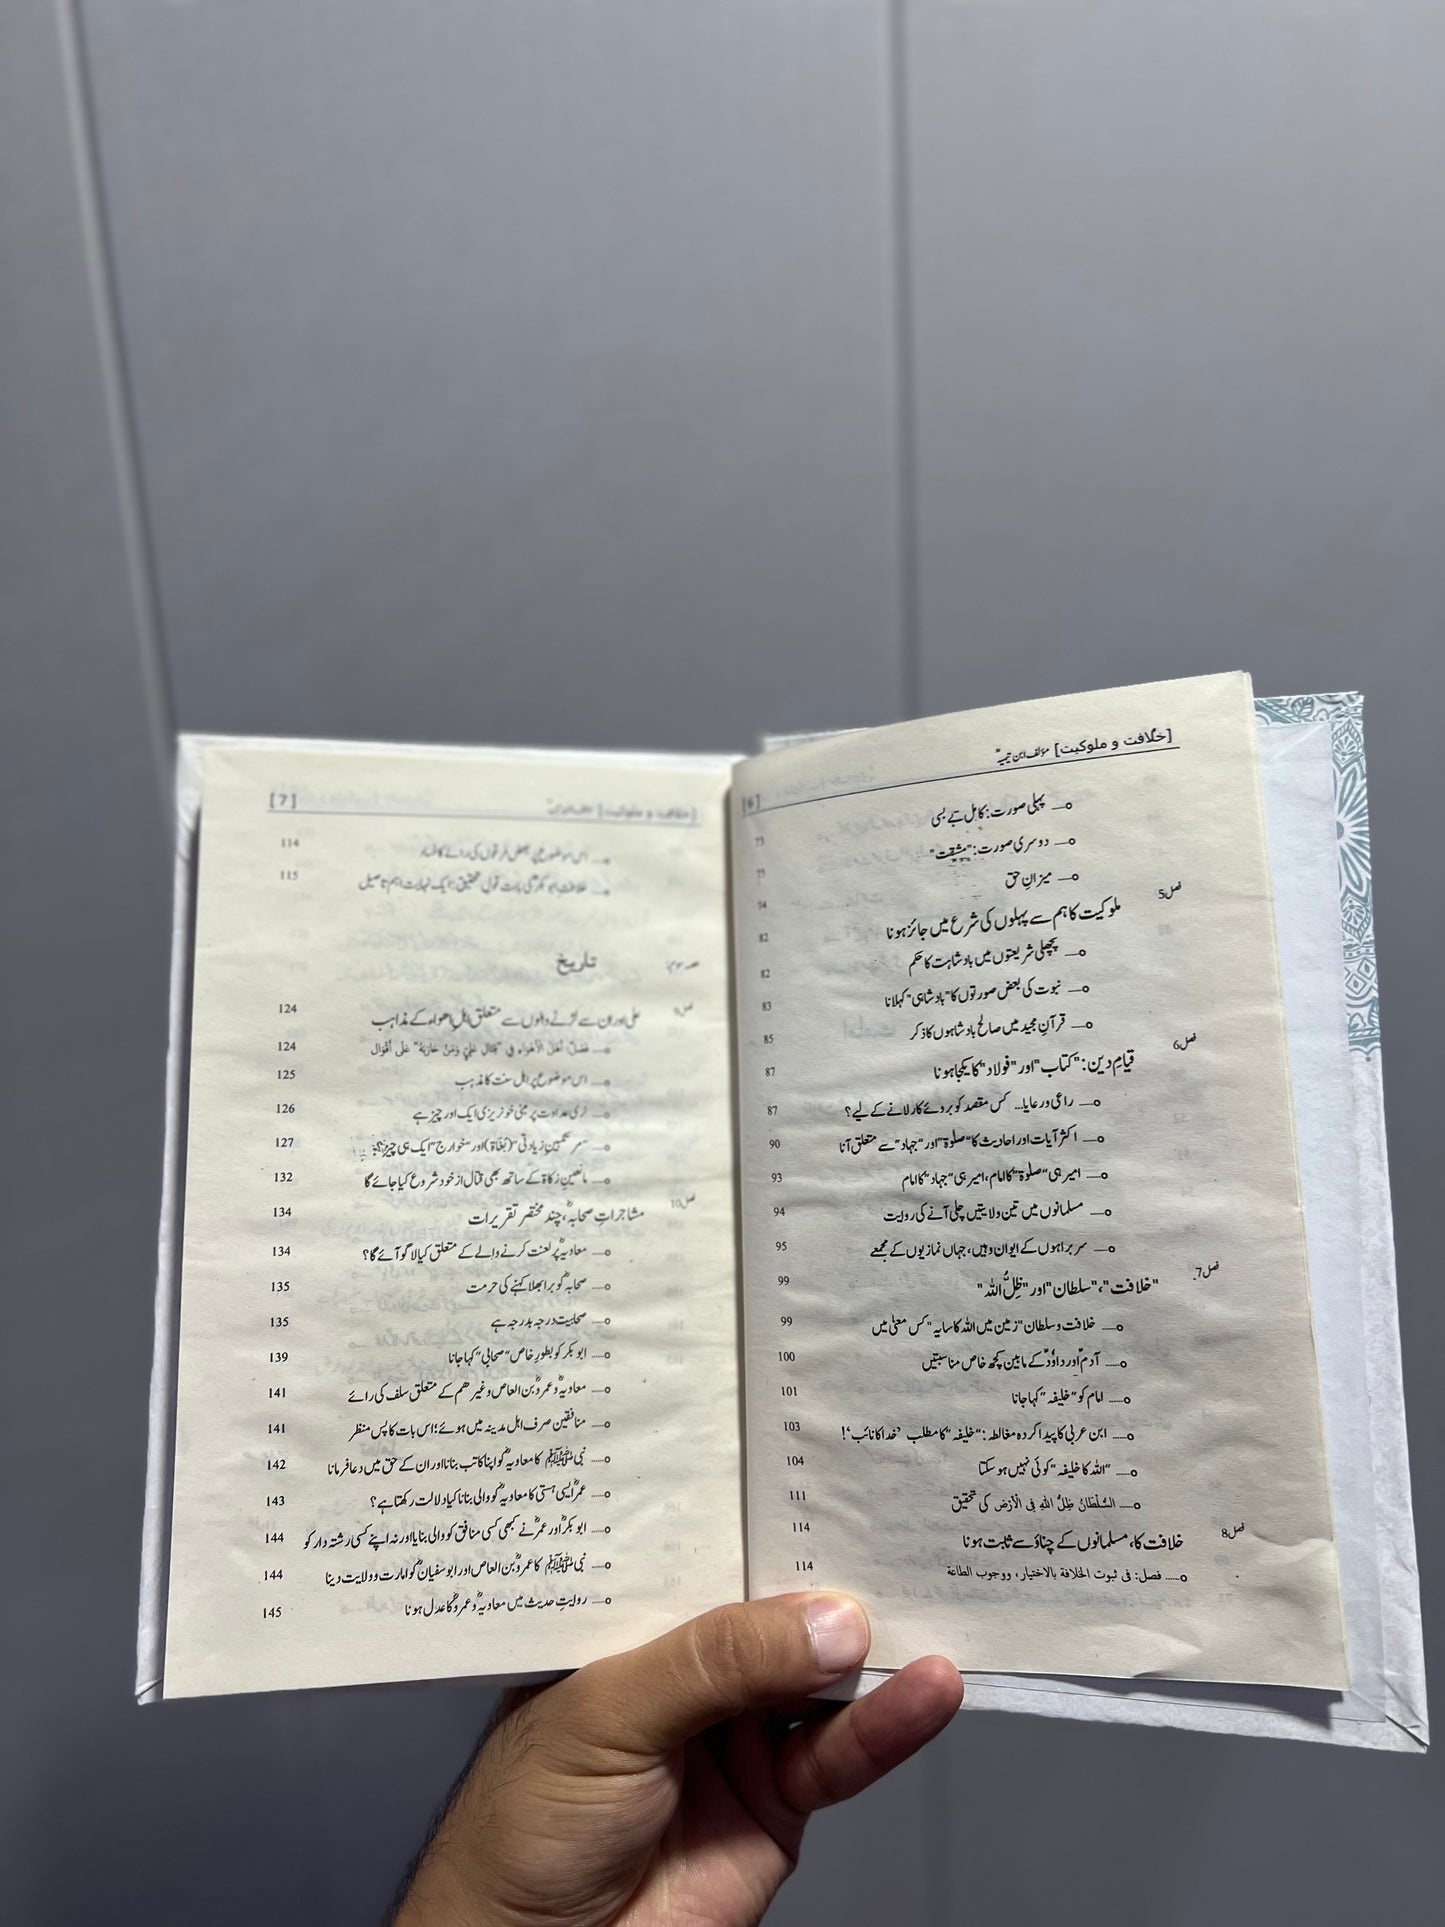 [خلافت و ملوکیت] مؤلف ابن تیمیہؒ [6]
o—— پہلی صورت: کامل بے بسی 73
o—— دوسری صورت: "مشقت" 75
o—— میزانِ حق
فصل5 ملوکیت کا ہم سے پہلوں کی شرع میں جائز ہونا 82
o—— پچھلی شریعتوں میں بادشاہت کا حکم 82
o—— نبوت کی بعض صورتوں کا "بادشاہی" کہلانا 83
o—— قرآنِ مجید میں صالح بادشاہوں کا ذکر 85
فصل6 قیامِ دین: "کتاب" اور "فولاد" کا یکجا ہونا 87
o—— راعی ورعایا... کس مقصد کو بروئے کار لانے کے لیے؟ 87
o—— اکثر آیات اور احادیث کا "صلوٰۃ" اور "جہاد" سے متعلق آنا 90
o—— امیر ہی "صلوٰۃ" کا امام، امیر ہی "جہاد" کا امام 93
o—— مسلمانوں میں تین ولایتیں چلی آنے کی روایت 94
o—— سربراہوں کے ایوان وہیں، جہاں نمازیوں کے مجمعے 95
فصل7 "خلافت"، "سلطان" اور "ظِلُّ اللہ" 99
o—— خلافت وسلطان "زمین میں اللہ کا سایہ" کس معنیٰ میں 99
o—— آدمؑ اور داوٗدؑ کے مابین کچھ خاص مناسبتیں 100
o—— امام کو "خلیفہ" کہا جانا 101
o—— ابن عربی کا پیدا کردہ مغالطہ: "خلیفہ" کا مطلب 'خدا کا نائب'! 103
o—— "اللہ کا خلیفہ" کوئی نہیں ہو سکتا 104
o—— السُّلْطَانُ ظِلُّ اللهِ فِی الْأَرْضِ کی تحقیق 111
فصل8 خلافت کا، مسلمانوں کے چناؤ سے ثابت ہونا 114
o—— فصل: فی ثبوت الخلافة بالاختیار، ووجوب الطاعة 114
[خلافت و ملوکیت] [7]
o—— اس موضوع پر بعض فرقوں کی رائے کا فساد 114
o—— خلافتِ ابو بکرؓ کی بابت قولِ تحقیق؛ ایک نہایت اہم تاصیل 115
تاریخ
فصل9 علی اور ان سے لڑنے والوں سے متعلق اہلِ اھواء کے مذاہب 124
o—— فَصْلٌ: أهْلُ الْأهْوَاءِ فِي "قِتَالِ عَلِيٍّ وَمَنْ حَارَبَهُ" عَلَى أَقْوَالٍ 124
o—— اس موضوع پر اہل سنت کا مذہب 125
o—— نری عداوت پر مبنی خونریزی ایک اور چیز ہے 126
o—— "مرتکبینِ زیادتی" (بُغَاة) اور "خوارج" ایک ہی چیز؟ 127
o—— مانعینِ زکاۃ کے ساتھ بھی قتال از خود شروع کیا جائے گا 132
فصل10 مشاجراتِ صحابہؓ، چند مختصر تقریرات 134
o—— معاویہؓ پر لعنت کرنے والے کے متعلق کیا لاگو آئے گا؟ 134
o—— صحابہؓ کو برا بھلا کہنے کی حرمت 135
o—— صحابیت درجہ بدرجہ ہے 135
o—— ابو بکر کو بطورِ خاص "صحابی" کہا جانا 139
o—— معاویہؓ وعمروؓ بن العاص وغیر ھم کے متعلق سلف کی رائے 141
o—— منافقین صرف اہل مدینہ میں ہوئے؛ اس بات کا پس منظر 141
o—— نبی ﷺ کا معاویہؓ کو اپنا کاتب بنانا اور ان کے حق میں دعا فرمانا 142
o—— عمرؓ ایسی ہستی کا معاویہؓ کو والی بنانا کیا دلالت رکھتا ہے؟ 143
o—— ابو بکرؓ اور عمرؓ نے کبھی کسی منافق کو والی بنایا اور نہ اپنے کسی رشتہ دار کو 144
o—— نبی ﷺ کا عمروؓ بن العاص اور ابو سفیانؓ کو امارت و ولایت دینا 144
o—— روایتِ حدیث میں معاویہؓ وعمروؓ کا عدل ہونا 145